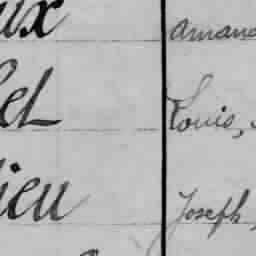 ux Amand
el Louis,
ieu Joseph,